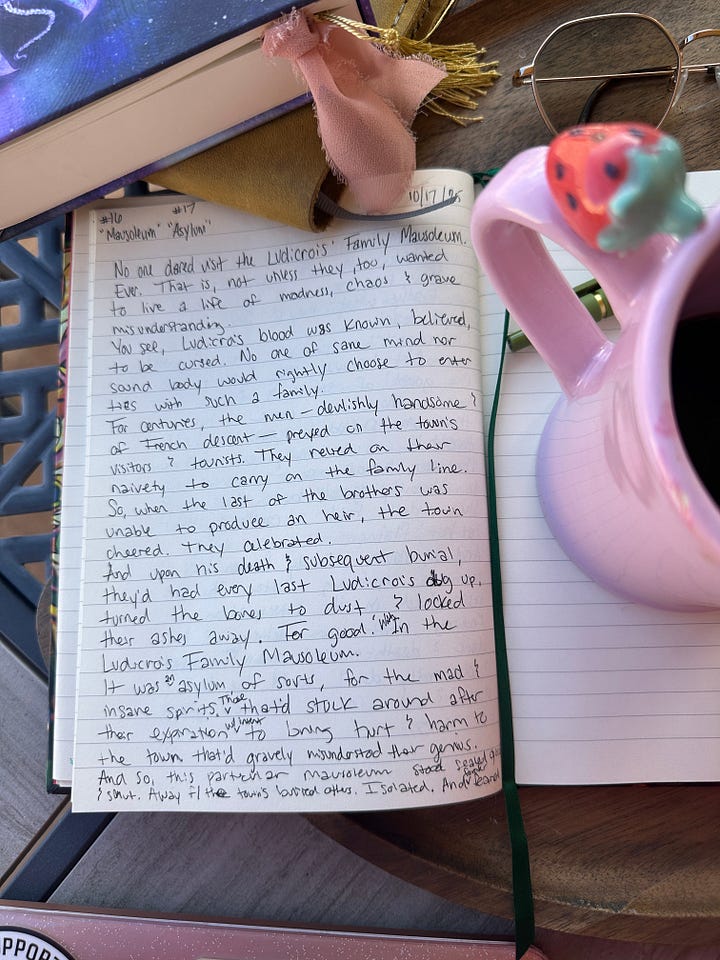 #16 #17 10/17/25
"Mausoleum" "Asylum"
No one dared visit the Ludicrois' Family Mausoleum.
Ever. That is, not unless they, too, wanted
to live a life of madness, chaos & grave
misunderstanding.
You see, Ludicrois blood was known, believed,
to be cursed. No one of sane mind nor
sound body would rightly choose to enter
ties with such a family.
For centuries, the men — devlishly handsome &
of French descent — preyed on the town's
visitors & tourists. They relied on their
naivety to carry on the family line.
So, when the last of the brothers was
unable to produce an heir, the town
cheered. They celebrated.
And upon his death & subsequent burial,
they'd had every last Ludicrois dug up,
turned the bones to dust & locked
their ashes away. For good. In the
Ludicrois Family Mausoleum.
It was an asylum of sorts, for the mad &
insane spirits. Those that'd stuck around after
their expiration w/ intent to bring hurt & harm to
the town that'd gravely misunderstood their genius.
And so, this particular mausoleum stood sealed
& shut. Away f/ the town's buried others. Isolated. And
PPORT